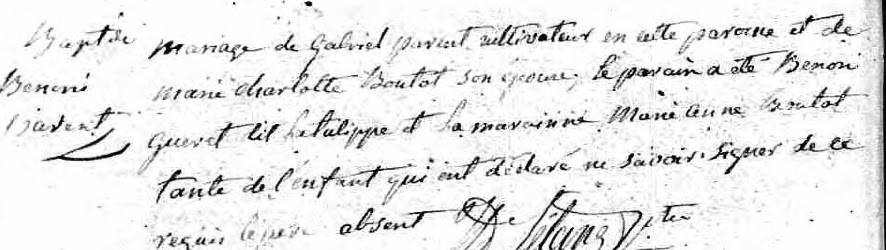 Bapt de
Benoni
Parent
mariage de Gabriel parent cultivateur en cette paroisse et de
marie charlotte Boutot son épouse, le parain a été Benoni
Gueret dit Latulippe et la marainne Marie Anne Boutot
tante de l'enfant qui ont déclaré ne savoir signer de ce
requis le père absent Ptre